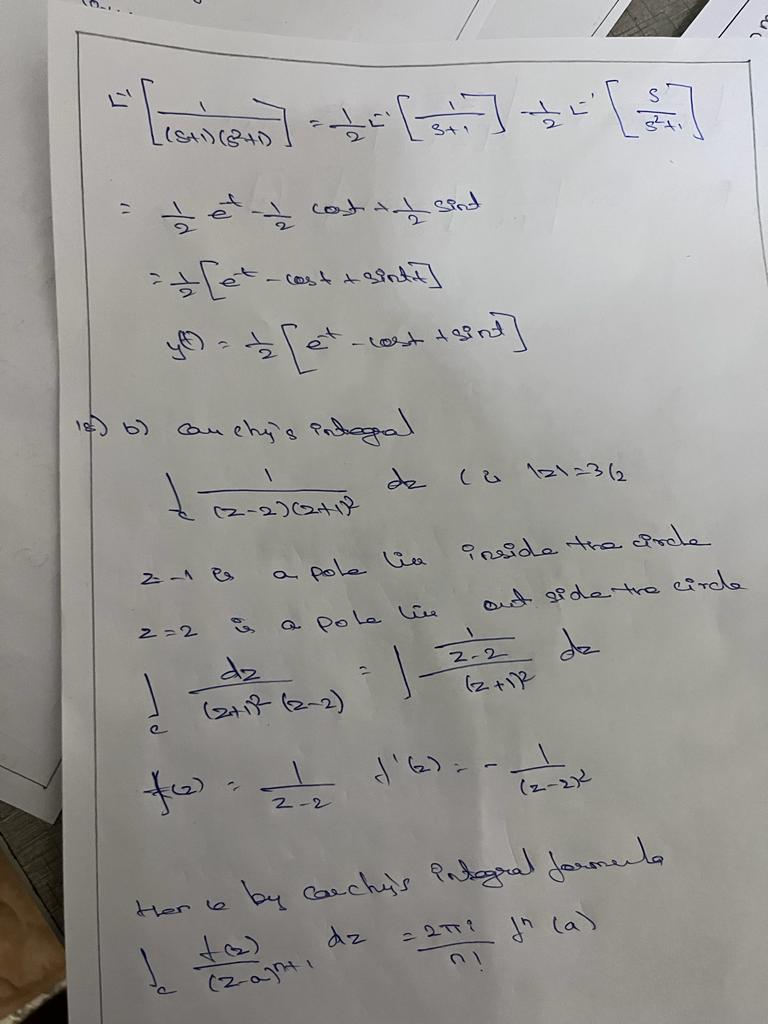 L⁻¹ [1/((s+1)(s²+1))] = 1/2 L⁻¹ [1/(s+1)] - 1/2 L⁻¹ [s/(s²+1)]
= 1/2 e⁻ᵗ - 1/2 cost + 1/2 sint
= 1/2 [e⁻ᵗ - cost + sint]
y(t) = 1/2 [e⁻ᵗ - cost + sint]
b) Cauchy's integral
∫c 1/((z-2)(z+1)²) dz C is |z|=3/2
z-1 is a pole lie inside the circle
z=2 is a pole lie out side the circle
∫c dz/((z+1)²(z-2)) = ∫ (1/(z-2))/(z+1)² dz
f(z) = 1/(z-2) f'(z) = - 1/(z-2)²
Hence by Cauchy's integral formula
∫c f(z)/(z-a)ⁿ⁺¹ dz = 2πi/n! fⁿ(a)